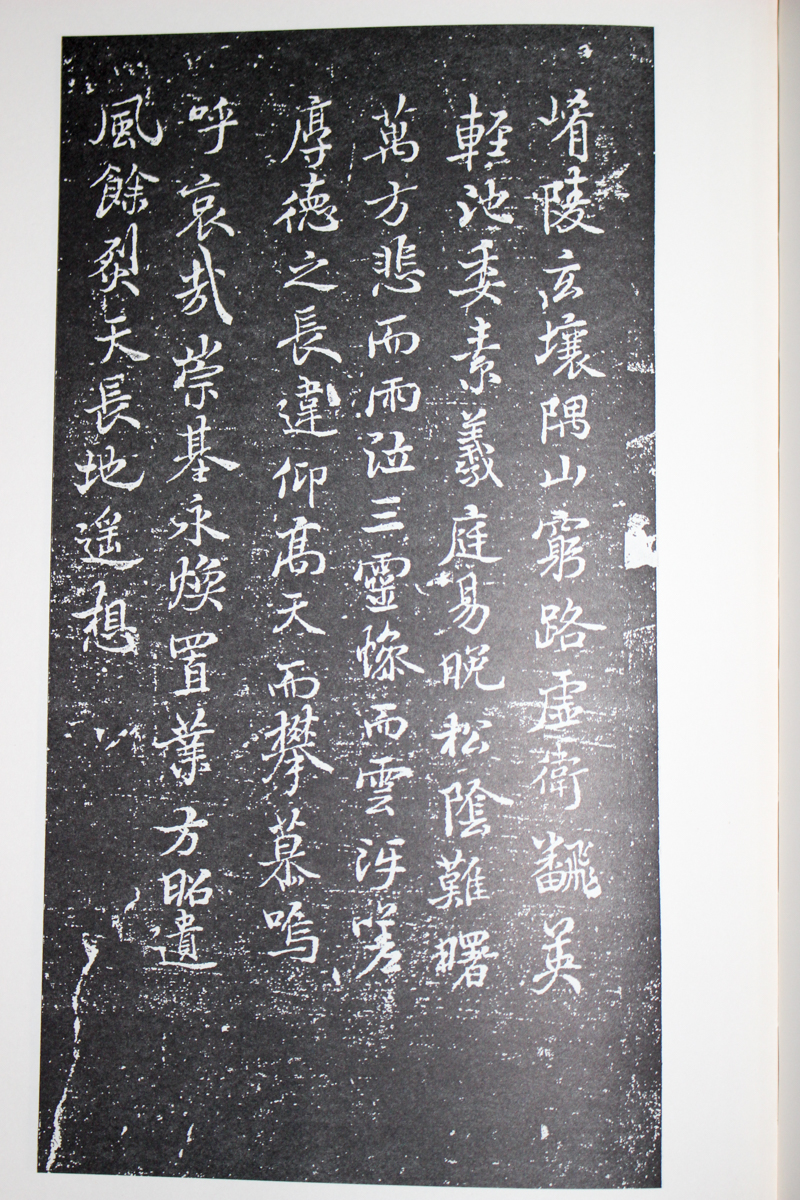 崤陵玄壤隅山窮路虛衛飜英
輕池委素羲庭易晚松陰難曙
萬方悲而雨泣三靈慘而雲冱嗟
厚德之長違仰高天而攀慕嗚
呼哀哉崇基永煥置業方昭遺
風餘烈天長地遥想